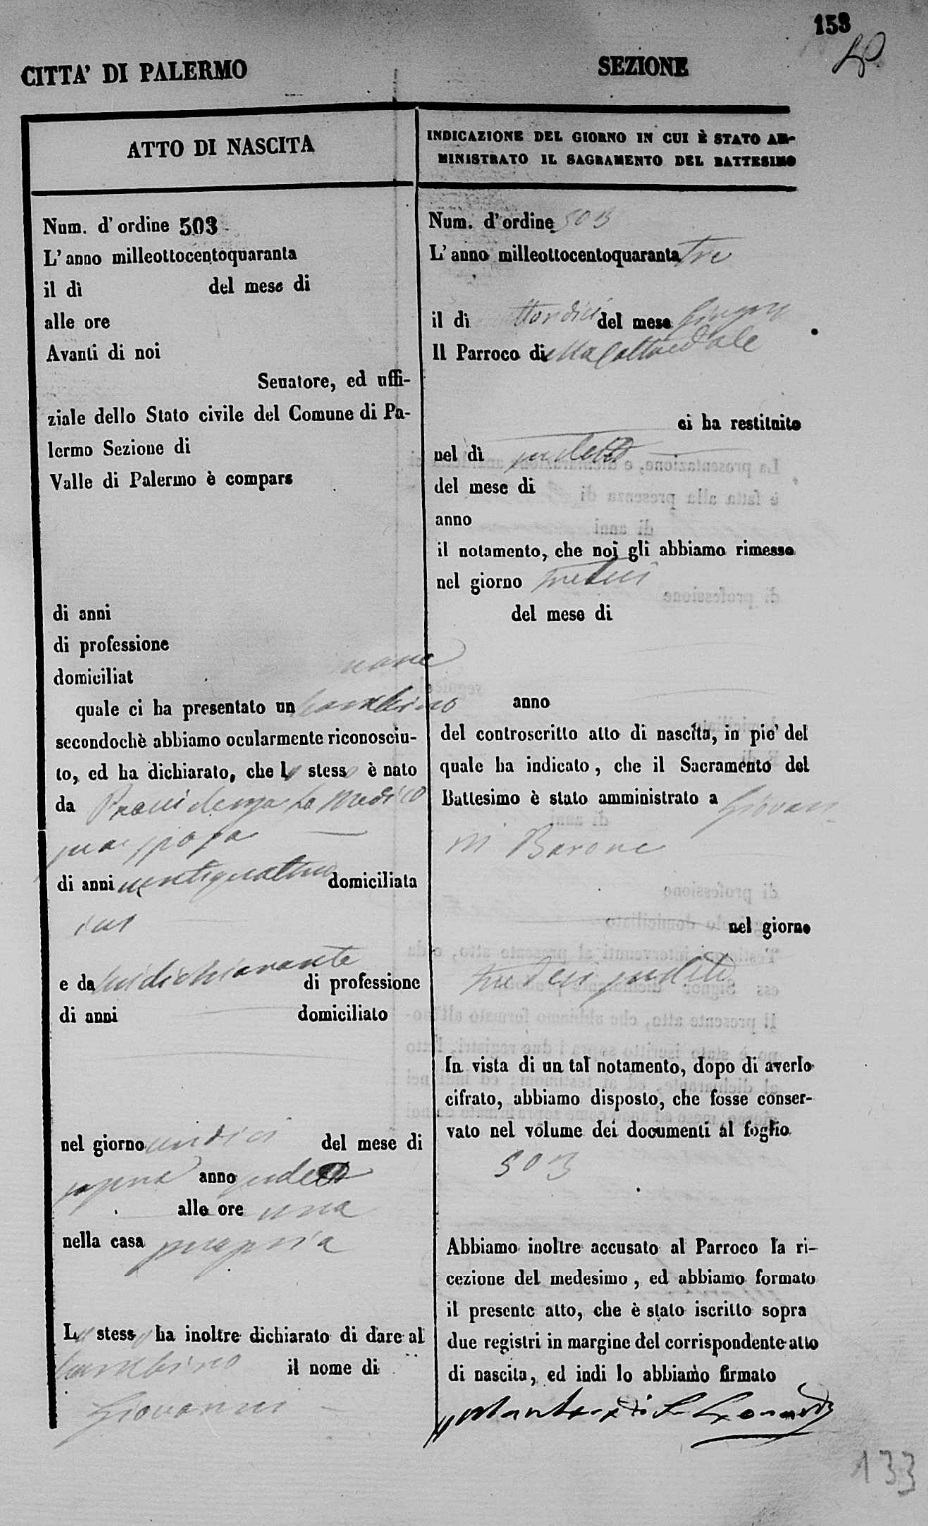 153
CITTA' DI PALERMO
SEZIONE
ATTO DI NASCITA
Num. d'ordine 503
L'anno milleottocentoquaranta
il dì del mese di
alle ore
Avanti di noi
Senatore, ed uffi-
ziale dello Stato civile del Comune di Pa-
lermo Sezione di
Valle di Palermo è compars
di anni
di professione
domiciliat
quale ci ha presentato un bambino
secondochè abbiamo ocularmente riconosciu-
to, ed ha dichiarato, che l stess è nato
da Providenza Lo Medico
di anni ventiquattro domiciliata
ivi
e da lui dichiarante di professione
di anni domiciliato
nel giorno undici del mese di
anno
alle ore una
nella casa propria
L stess ha inoltre dichiarato di dare al
bambino il nome di
Giovanni
INDICAZIONE DEL GIORNO IN CUI È STATO AM-
MINISTRATO IL SAGRAMENTO DEL BATTESIMO
Num. d'ordine 503
L'anno milleottocentoquaranta tre
il dì del mese Giugno
Il Parroco di
ci ha restituito
nel dì
del mese di
anno
il notamento, che noi gli abbiamo rimesso
nel giorno
del mese di
anno
del controscritto atto di nascita, in pie' del
quale ha indicato, che il Sacramento del
Battesimo è stato amministrato a Giovan
ni Barone
nel giorno
In vista di un tal notamento, dopo di averlo
cifrato, abbiamo disposto, che fosse conser-
vato nel volume dei documenti al foglio
503
Abbiamo inoltre accusato al Parroco la ri-
cezione del medesimo, ed abbiamo formato
il presente atto, che è stato iscritto sopra
due registri in margine del corrispondente atto
di nascita, ed indi lo abbiamo firmato
133